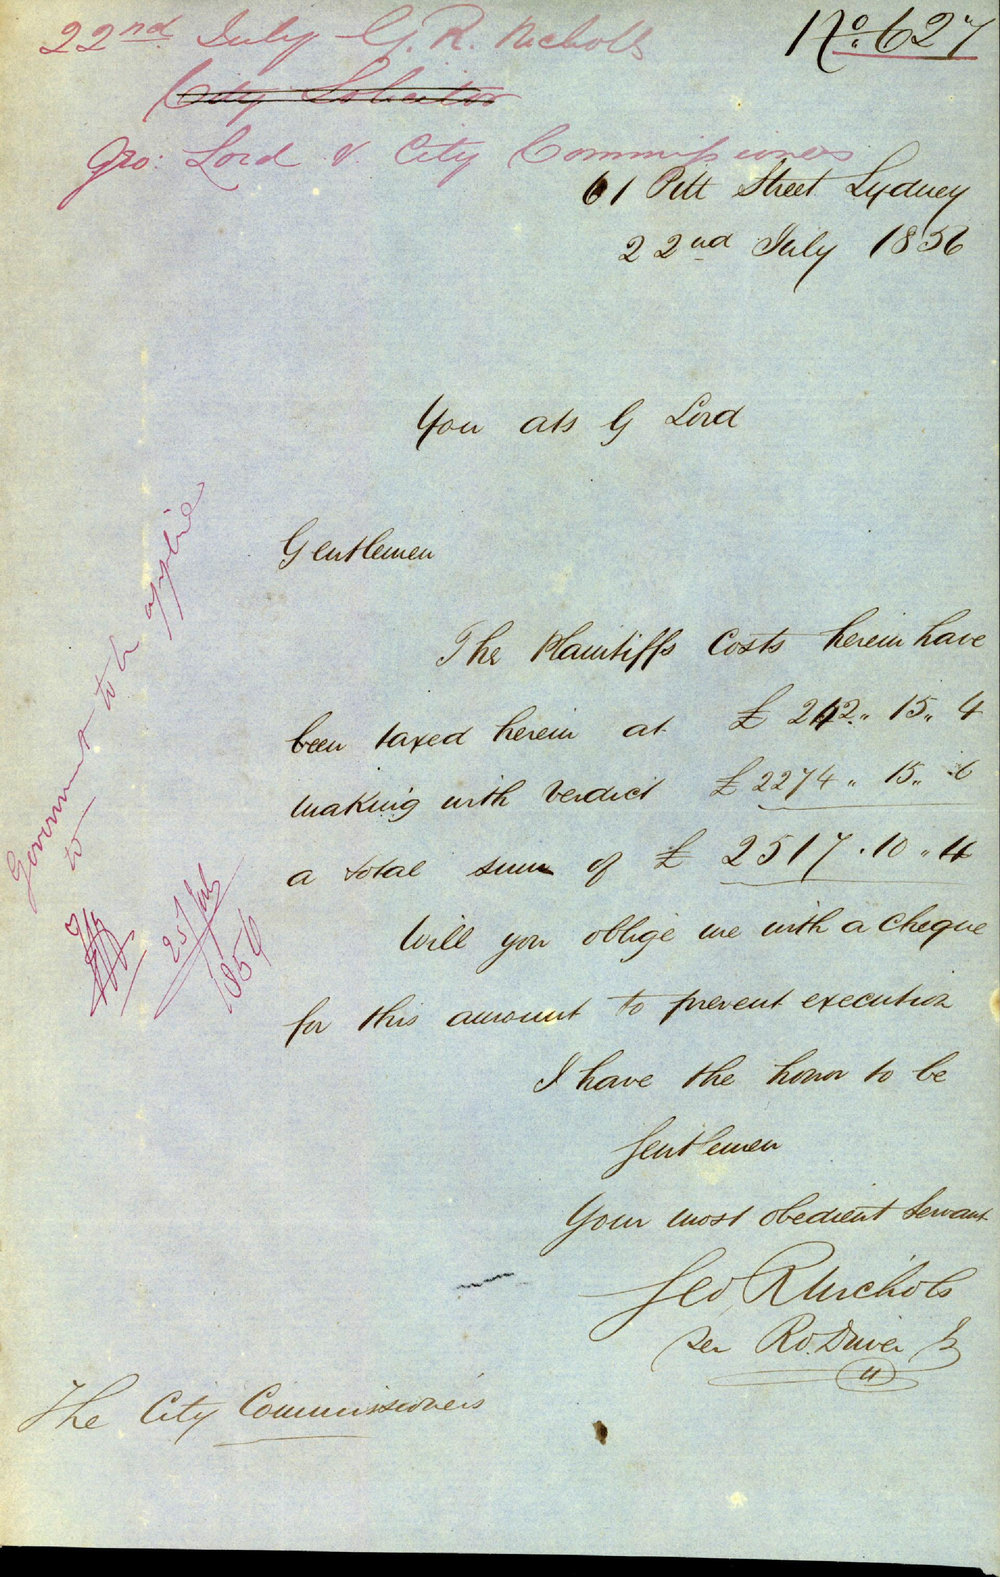 22nd July G. R. Nichols
No. 627
City Solicitor
Geo: Lord v. City Commissioners
61 Pitt Street Sydney
22nd July 1856
You ats G Lord
Gentlemen
The Plaintiffs Costs herein have
been taxed herein at £ 242.. 15.. 4
making with Verdict £ 2274 .. 15..
a total sum of £ 2517 . 10 .. 4
Will you oblige me with a cheque
for this amount to prevent execution
I have the honor to be
Gentlemen
Your most obedient Servant
Geo R Nichols
per Ro. Driver Jr
The City Commissioners
Government to be applied
to
25 July
1856